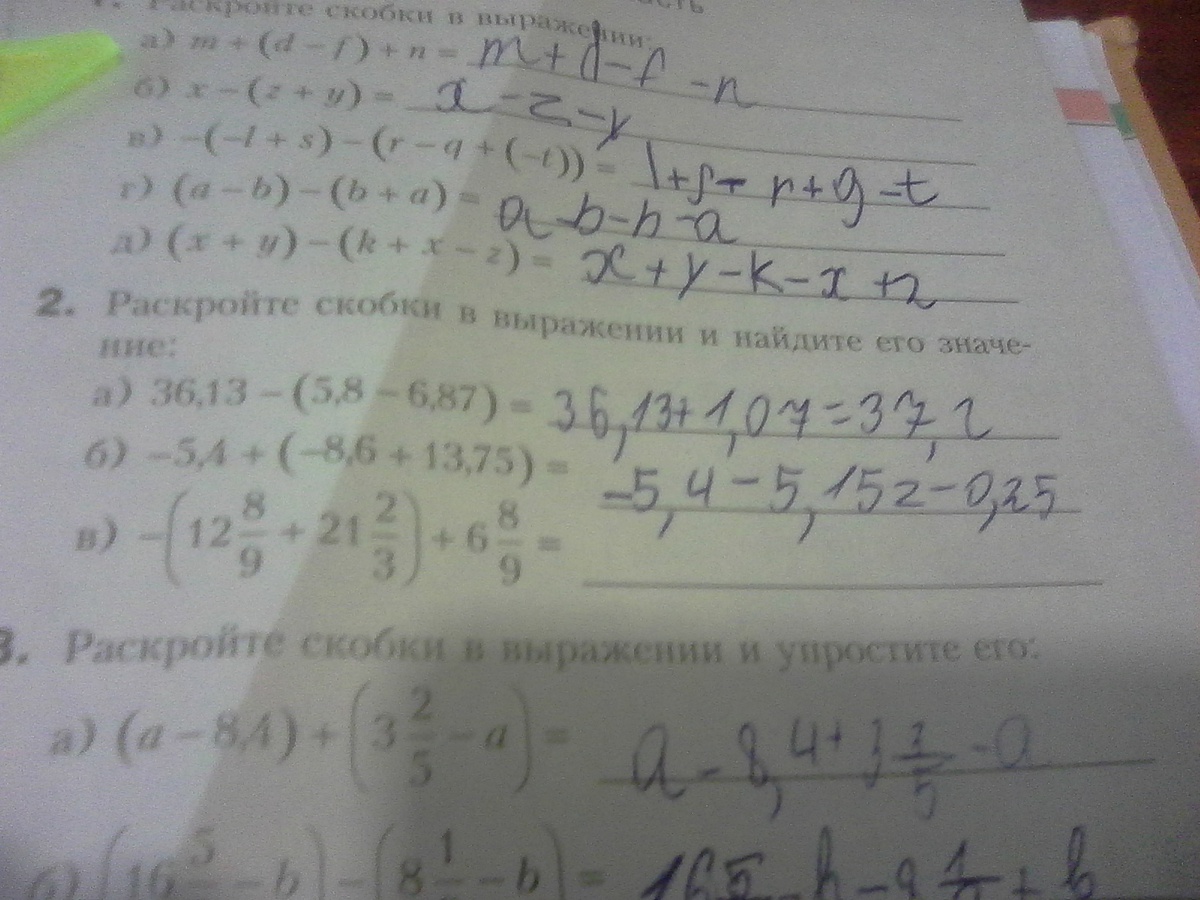 Раскройте скобки в выражении:
а) m + (d − f) + n = m + d − f − n
б) x − (z + y) = x − z − y
в) −(−l + s) − (r − q + (−t)) = l + s − r + g − t
г) (a − b) − (b + a) = a − b − b − a
д) (x + y) − (k + x − z) = x + y − k − x + z
2. Раскройте скобки в выражении и найдите его значе-
ние:
а) 36,13 − (5,8 − 6,87) = 36,13 + 1,07 = 37,2
б) −5,4 + (−8,6 + 13,75) = −5,4 − 5,15 = −0,25
в) −(12 8/9 + 21 2/3) + 6 8/9 =
3. Раскройте скобки в выражении и упростите его:
а) (a − 8,4) + (3 2/5 − a) = a − 8,4 + 3 2/5 − a
б) (16 5 − b) − (8 1 − b) = 16 5 − b − 8 1 + b